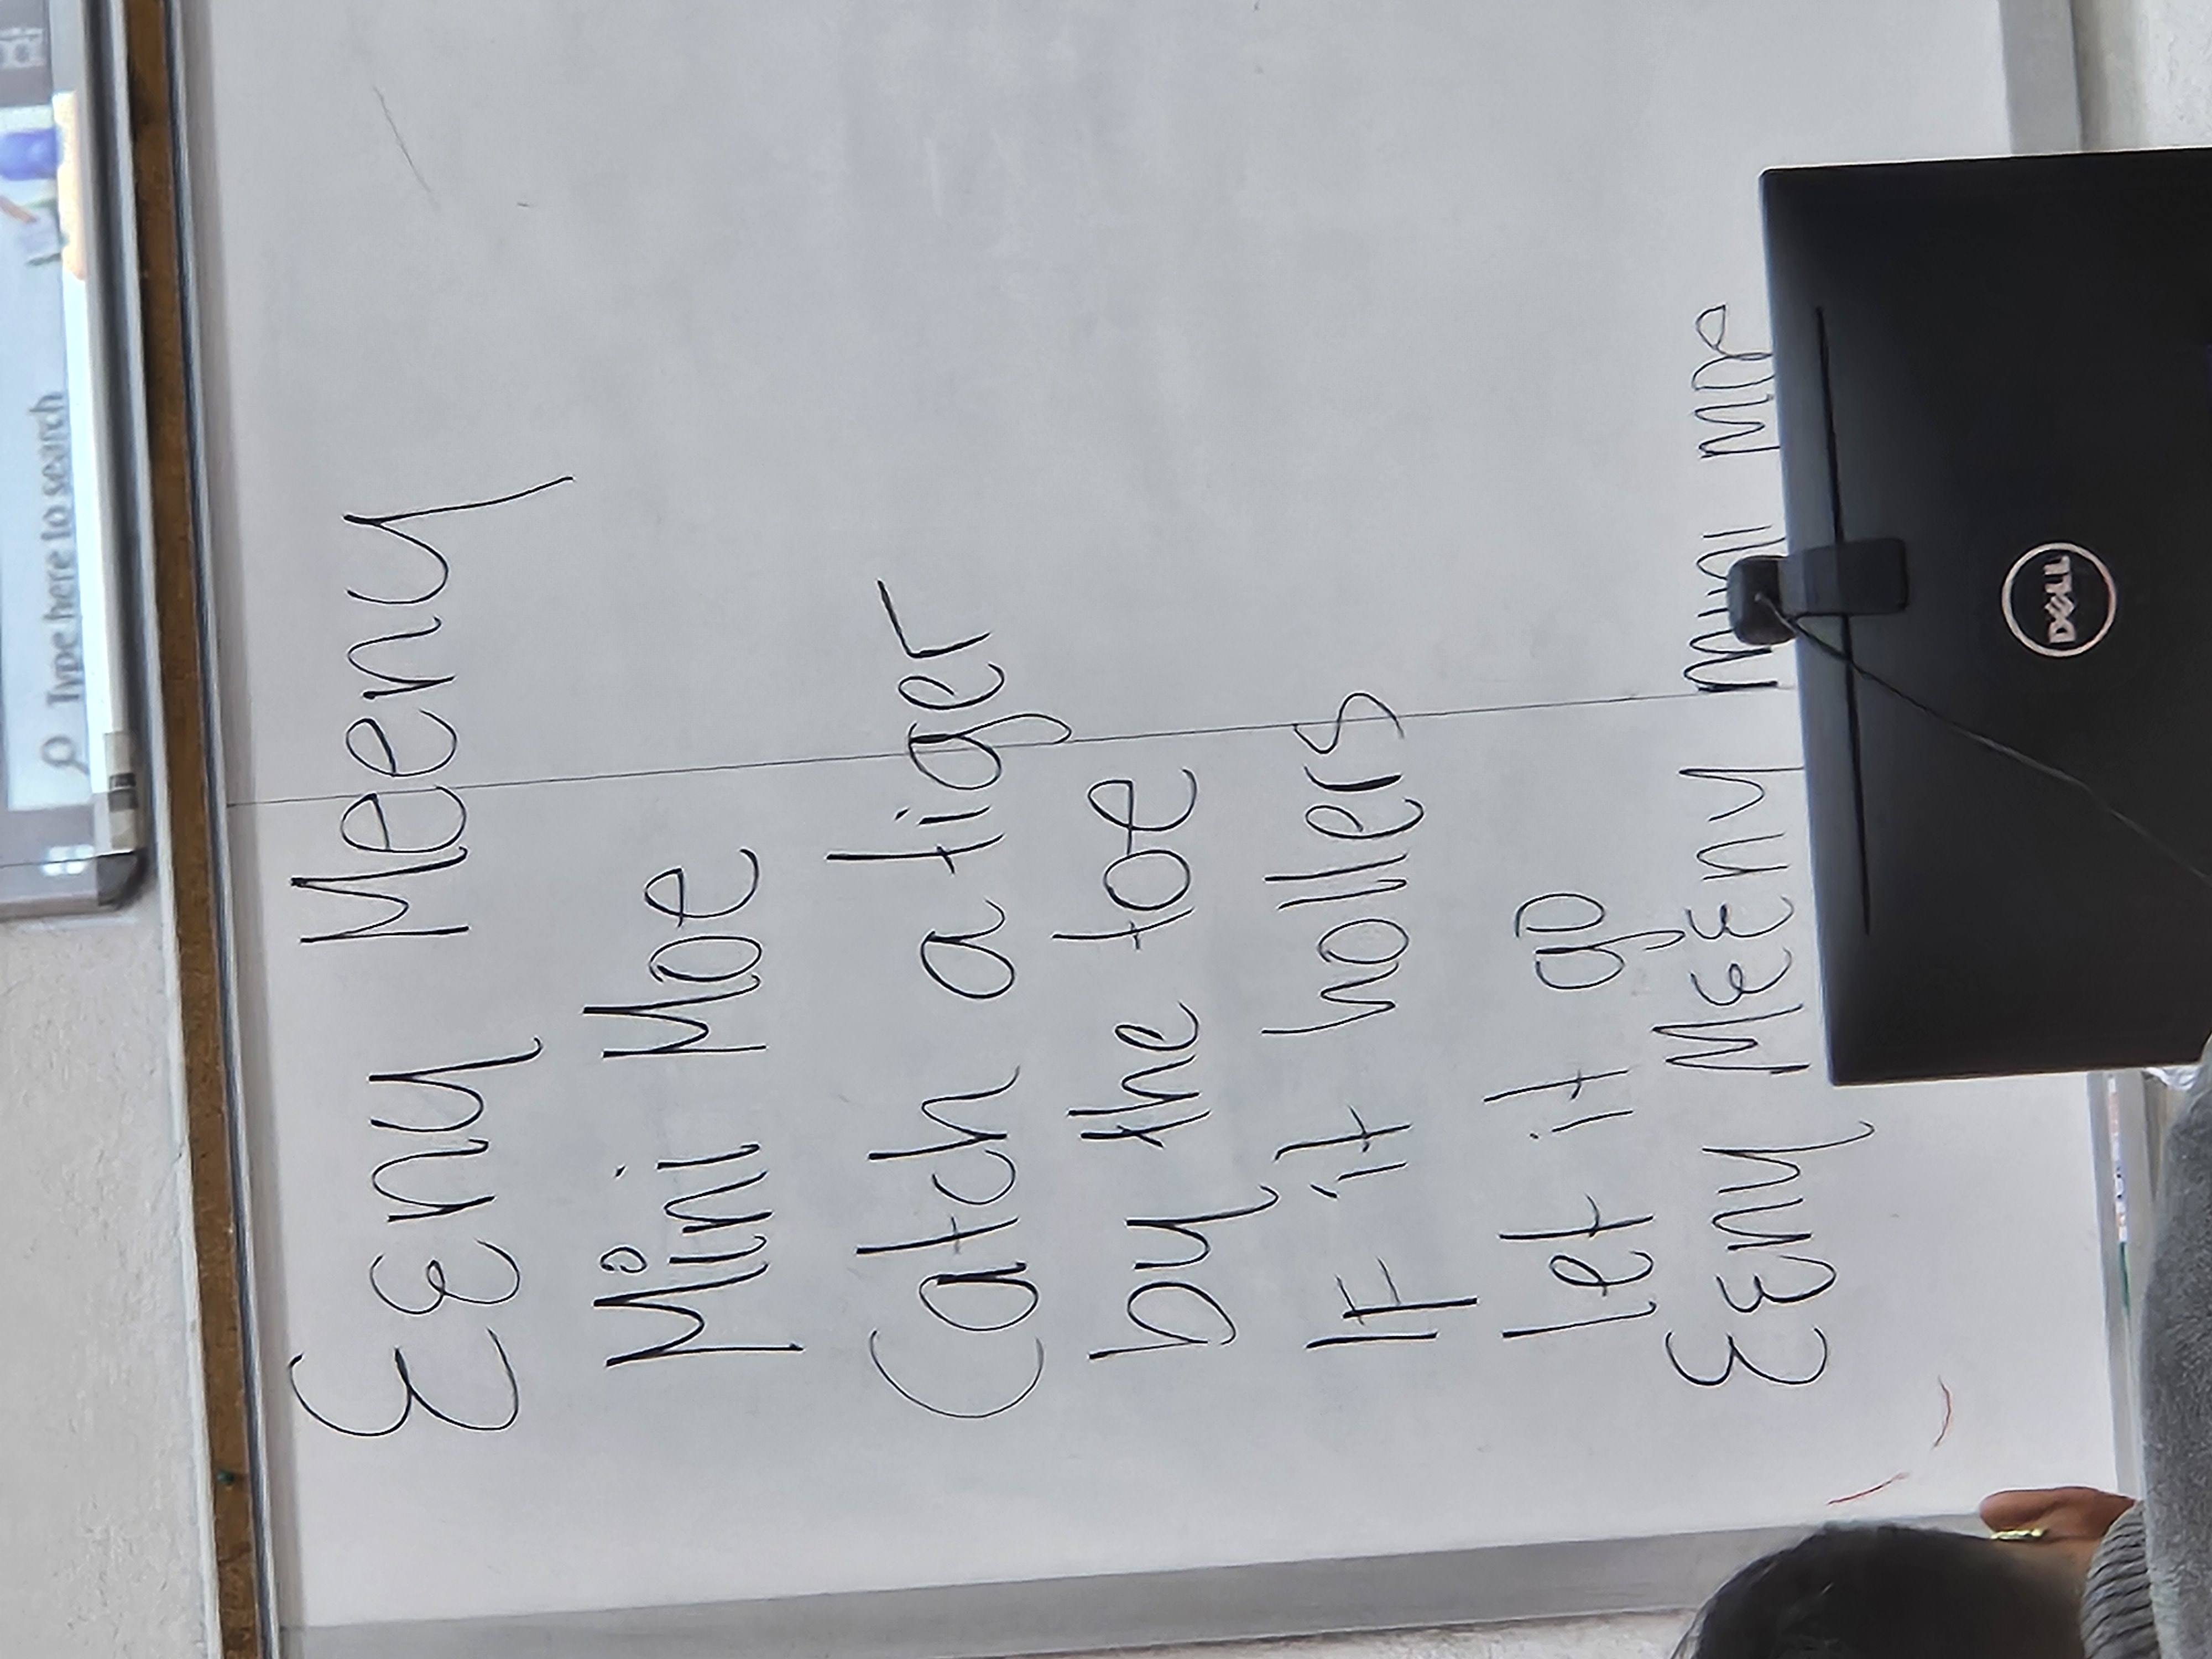 Type here to search
Eeny Meeny
Mini Moe
Catch a tiger
by the toe
IF it hollers
let it go
Eeny Meeny mini moe
DELL